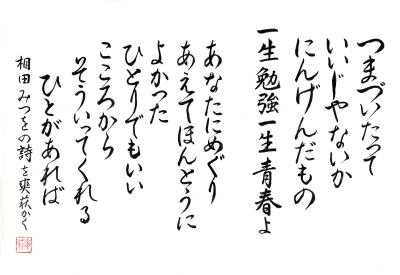 つまづいたって
いいじゃないか
にんげんだもの
一生勉強一生青春よ
あなたにめぐり
あえてほんとうに
よかった
ひとりでもいい
こころから
そういってくれる
ひとがあれば
相田みつをの詩を爽萩かく